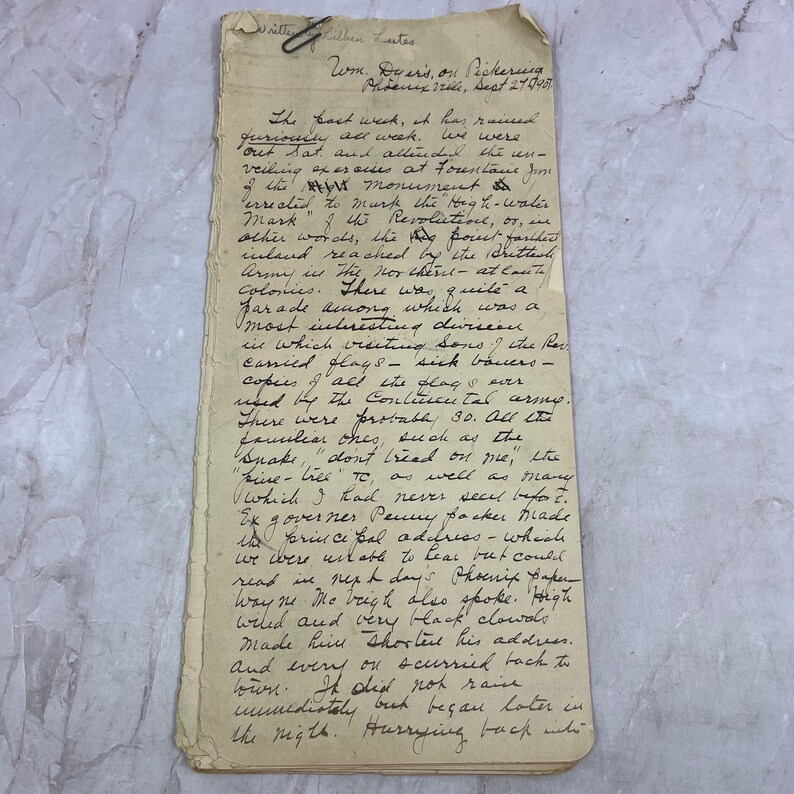 Written by Lillian Lutes
Wm. Dyer's, on Pickering
Phoenixville, Sept 27 1907.
The past week, it has rained
furiously all week. We were
out Sat. and attended the un-
veiling exercises at Fountain Inn
of the monument
errected to mark the "High-water
Mark" of the Revolution, or, in
other words, the point farthest
inland reached by the Brittish
Army in the Northern - at least
colonies. There was quite a
parade among which was a
most interesting division
in which visiting Sons of the Rev.
carried flags - silk baners -
copies of all the flags ever
used by the Continental army.
There were probably 30. All the
familiar ones, such as the
Snake, "don't tread on me", the
"pine-tree" as well as many
which I had never seen before.
Ex governer Pennypacker made
the principal address - which
we were unable to hear but could
read in next day's Phoenix paper -
Wayne McVeigh also spoke. High
wind and very black clowds
made him shorten his address.
And every on scurried back to
town. It did not rain
immediately but began later in
the night. Hurrying back into